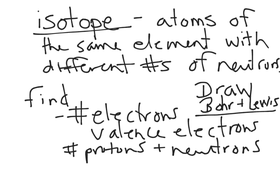 isotope - atoms of
the same element with
different #s of neutrons
find
Draw
Bohr + Lewis
- # electrons
valence electrons
# protons + neutrons